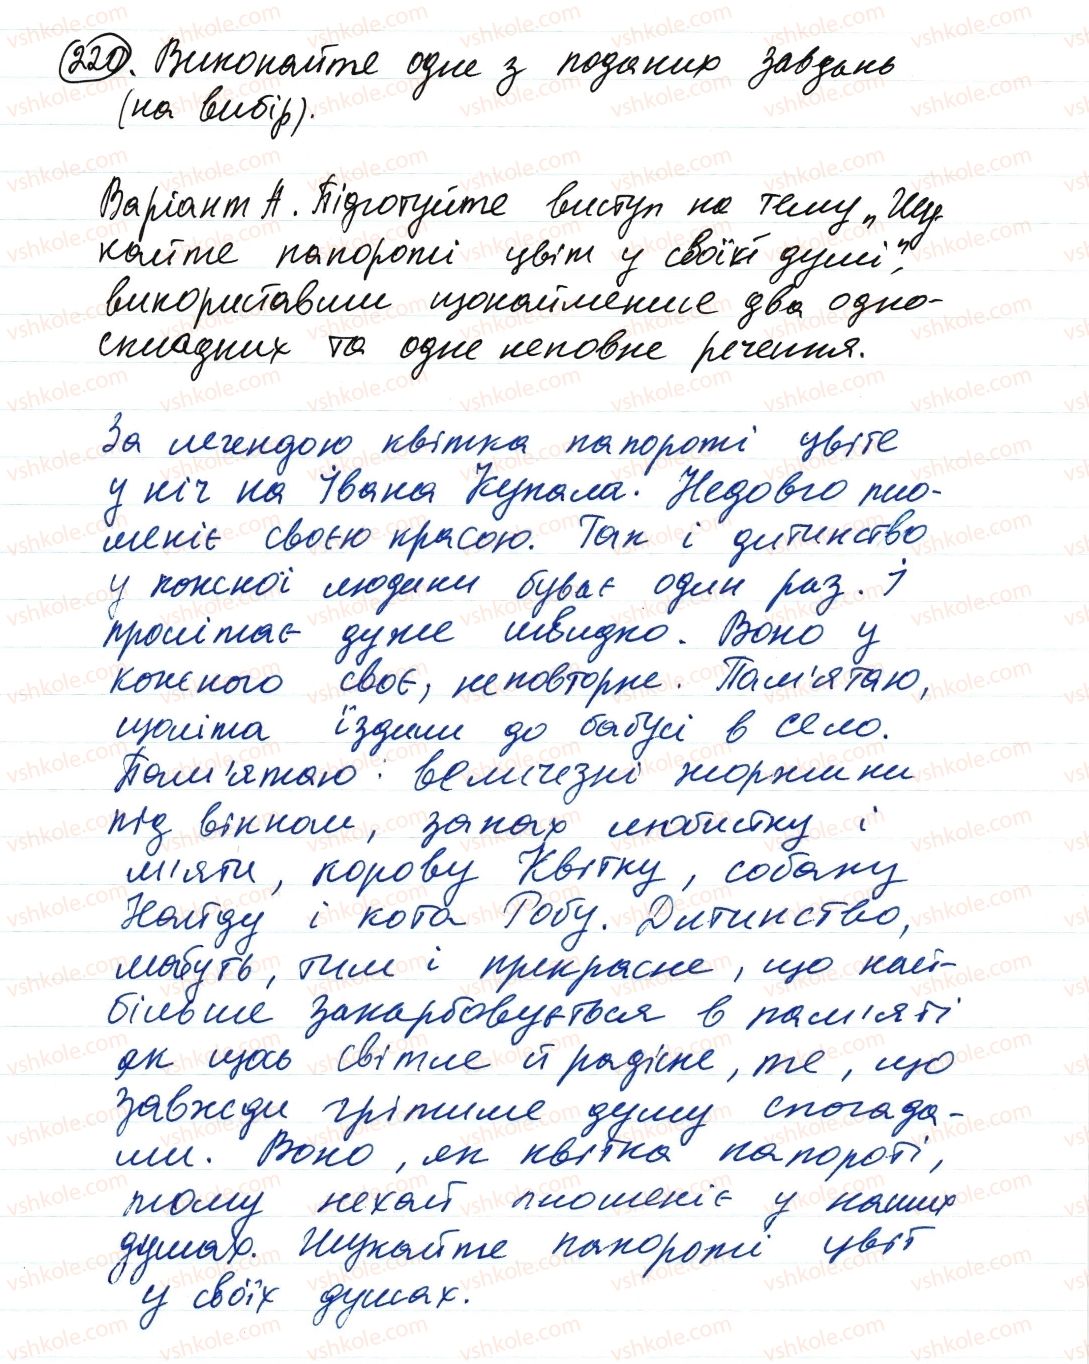 220. Виконайте одне з поданих завдань
(на вибір).
Варіант А. Підготуйте виступ на тему „Шу-
кайте папороті цвіт у своїй душі",
використавши щонайменше два одно-
складних та одне неповне речення.
За легендою квітка папороті цвіте
у ніч на Івана Купала. Недовго пло-
меніє своєю красою. Так і дитинство
у кожної людини буває один раз. І
пролітає дуже швидко. Воно у
кожного своє, неповторне. Пам'ятаю,
щоліта їздили до бабусі в село.
Пам'ятаю: величезні жоржини
під вікном, запах любистку і
м'яти, корову Квітку, собаку
Найду і кота Робу. Дитинство,
мабуть, тим і прекрасне, що най-
більше закарбовується в пам'яті
як щось світле й радісне, те, що
завжди грітиме душу спогада-
ми. Воно, як квітка папороті,
тому нехай пломеніє у наших
душах. Шукайте папороті цвіт
у своїх душах.